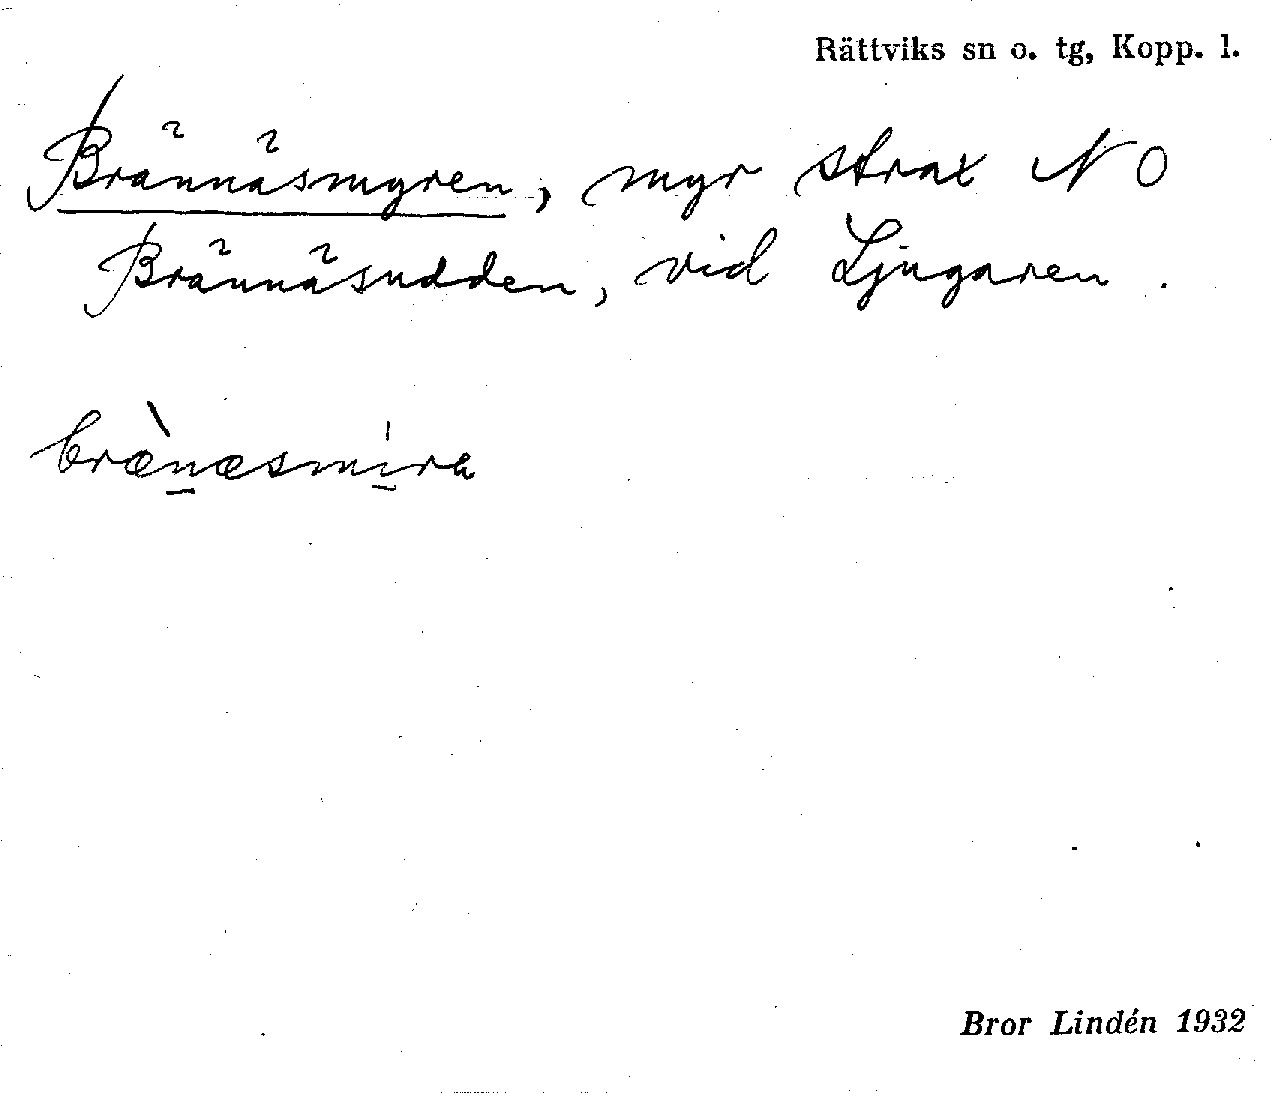 Rättviks sn o. tg, Kopp. l.
Brännäsmyren, myr strax NO
Brännäsudden, vid Ljugaren.
bræ̀næsmira
Bror Lindén 1932